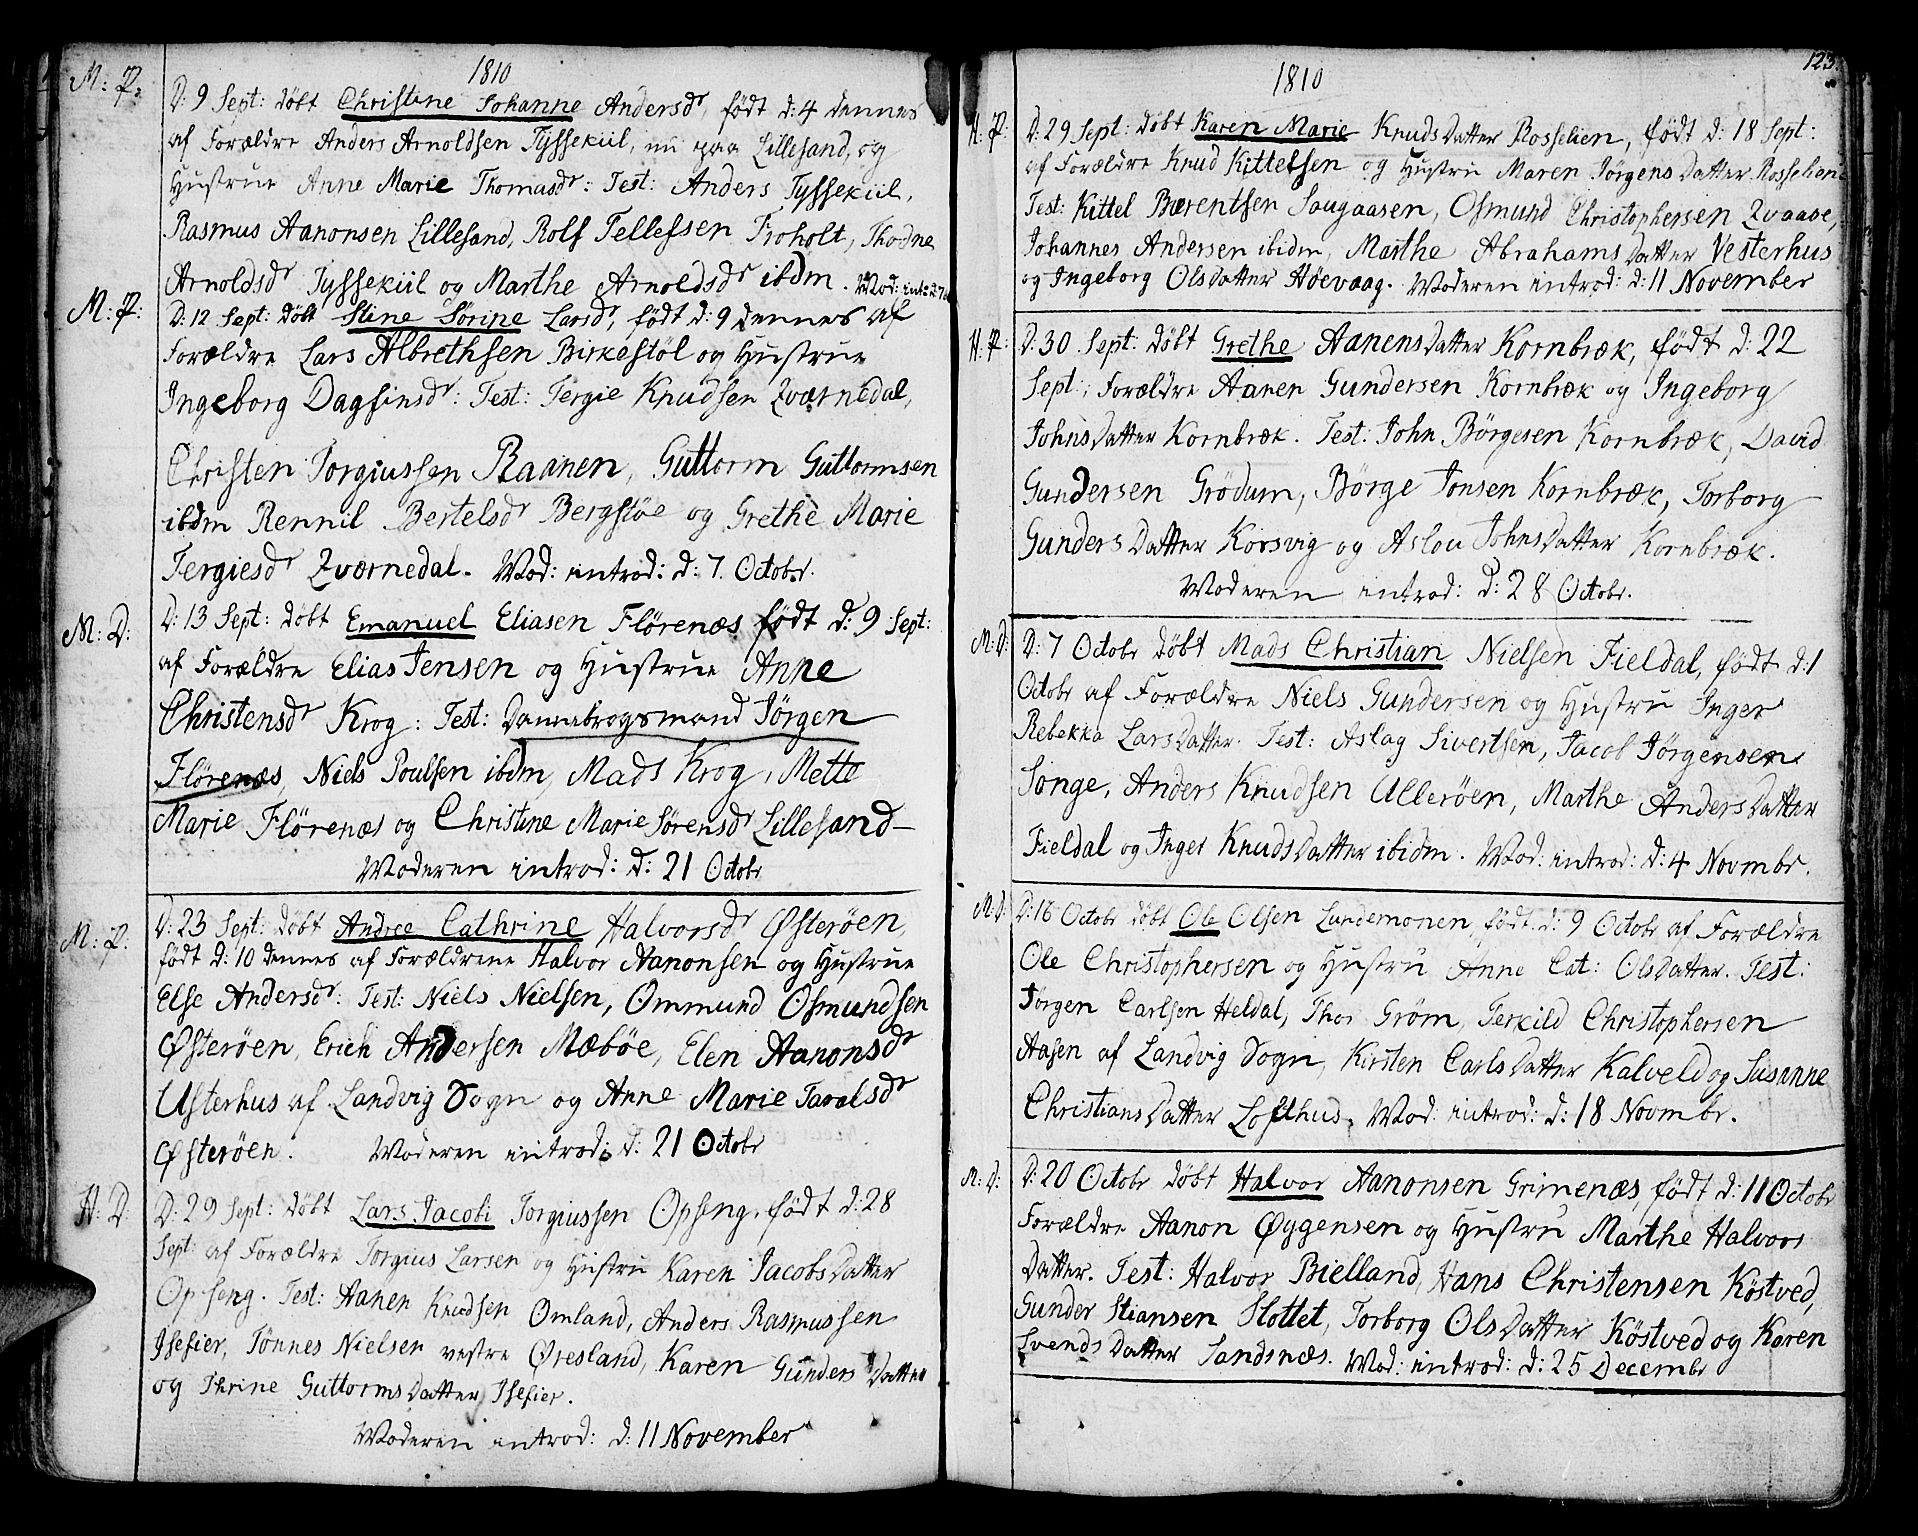 1810
M: P:
D: 9 Sept: døbt Christine Johanne Andersdr, født d: 4 dennes
af Forældre Anders Arnoldsen Tyssekiil, nu paa Lillesand, og
Hustrue Anne Marie Thomasdr: Test: Anders Tyssekiil,
Rasmus Aanonsen Lillesand, Rolf Tellefsen Froholt, Thodne
Arnoldsdr Tyssekiil og Marthe Arnoldsdr ibdm. Mod: int:
M: P:
D: 12 Sept: døbt Stine Sørine Larsdr, født d: 9 dennes af
Forældre Lars Albrethsen Birkestöl og Hustrue
Ingeborg Dagfinsdr: Test: Tergie Knudsen Qværnedal,
Christen Torgiussen Raanen, Guttorm Guttormsen
ibdm Rennil Bertelsdr Bergstøe og Grethe Marie
Tergiesdr Qværnedal. Mod: introd: d: 7. Octobr.
M: D:
D: 13 Sept: døbt Emanuel Eliasen Flørenæs født d: 9 Sept:
af Forældre Elias Jensen og Hustrue Anne
Christensdr Krog: Test: Dannabrogsmand Jørgen
Flørenæs, Niels Poulsen ibdm, Mads Krog, Mette
Marie Flørenæs og Christine Marie Sørensdr Lillesand–
Moderen introd: d: 21 Octobr
M: P.
D: 23 Sept: døbt Andree Cathrine Halvorsdr Østerøen,
født d: 10 dennes af Forældrene Halvor Aanonsen og Hustrue
Else Andersdr: Test: Niels Nielsen, Ommund Osmundsen
Østerøen, Erich Andersen Mæbøe, Elen Aanonsdr
Usterhus af Landvig Sogn og Anne Marie Taralsdr
Østerøen. Moderen introd: d: 21 Octobr
H: D
D: 29 Sept: døbt Lars Jacobi Torgiussen Opseng, født d: 28
Sept: af Forældre Torgius Larsen og Hustru Karen Jacobs Datter
Opseng. Test: Aanen Knudsen Omland, Anders Rasmussen
Isefier, Tønnes Nielsen vestre Øresland, Karen Gunders Datter
og Thrine Guttorms Datter Isefier.
Moderen introd: d: 11 November
123.
1810
H: P:
D: 29 Sept: døbt Karen Marie Knuds Datter Rosselien, født d: 18 Sept:
af Forældre Knud Kittelsen og Hustru Maren Jörgens Datter Rosselien
Test: Kittel Bærentsen Saugaasen, Osmund Christophersen Qvaase,
Johannes Andersen ibidm, Marthe Abrahams Datter Vesterhus
og Ingeborg Ols Datter Høevaag. Moderen introd: d: 11 November
H: P:
D: 30 Sept: døbt Grethe Aanens Datter Kornbræk, født d: 22
Sept:, Forældre Aanen Gundersen Kornbræk og Ingeborg
Johns Datter Kornbræk. Test: John Börgesen Kornbræk, David
Gundersen Grödum, Börge Jonsen Kornbræk, Torborg
Gunders Datter Korsvig og Aslou Johns Datter Kornbræk.
Moderen introd: d: 28 Octobr.
M: D:
D: 7 Octobr døbt Mads Christian Nielsen Fieldal, født d: 1
Octobr af Forældre Niels Gundersen og Hustru Inger
Rebekka Lars Datter. Test: Aslag Sivertsen, Jacob Jörgensen
Songe, Anders Knudsen Ullerøen, Marthe Anders Datter
Fieldal og Inger Knuds Datter ibidm. Mod: introd: d: 4 Novmbr.
M: D:
D: 16 Octobr døbt Ole Olsen Lundemonen, født d: 9 Octobr af Forældre
Ole Christophersen og Hustru Anne Cat: Ols Datter. Test:
Jörgen Carlsen Heldal, Thor Grøm, Terkild Christophersen
Aasen af Landvig Sogn, Kirsten Carls Datter Kalveld og Susanne
Christians Datter Lofthus. Mod: introd: d: 18 Novmbr.
M: D:
D: 20 Octobr døbt Halvor Aanonsen Grimenæs, født d: 11 Octobr
Forældre Aanon Øygensen og Hustru Marthe Halvors
Datter. Test: Halvor Bielland, Hans Christensen Köstved,
Gunder Stiansen Slottet, Torborg Ols Datter Köstved og Karen
Svends Datter Sandsnæs. Mod: introd: d: 25 Decembr